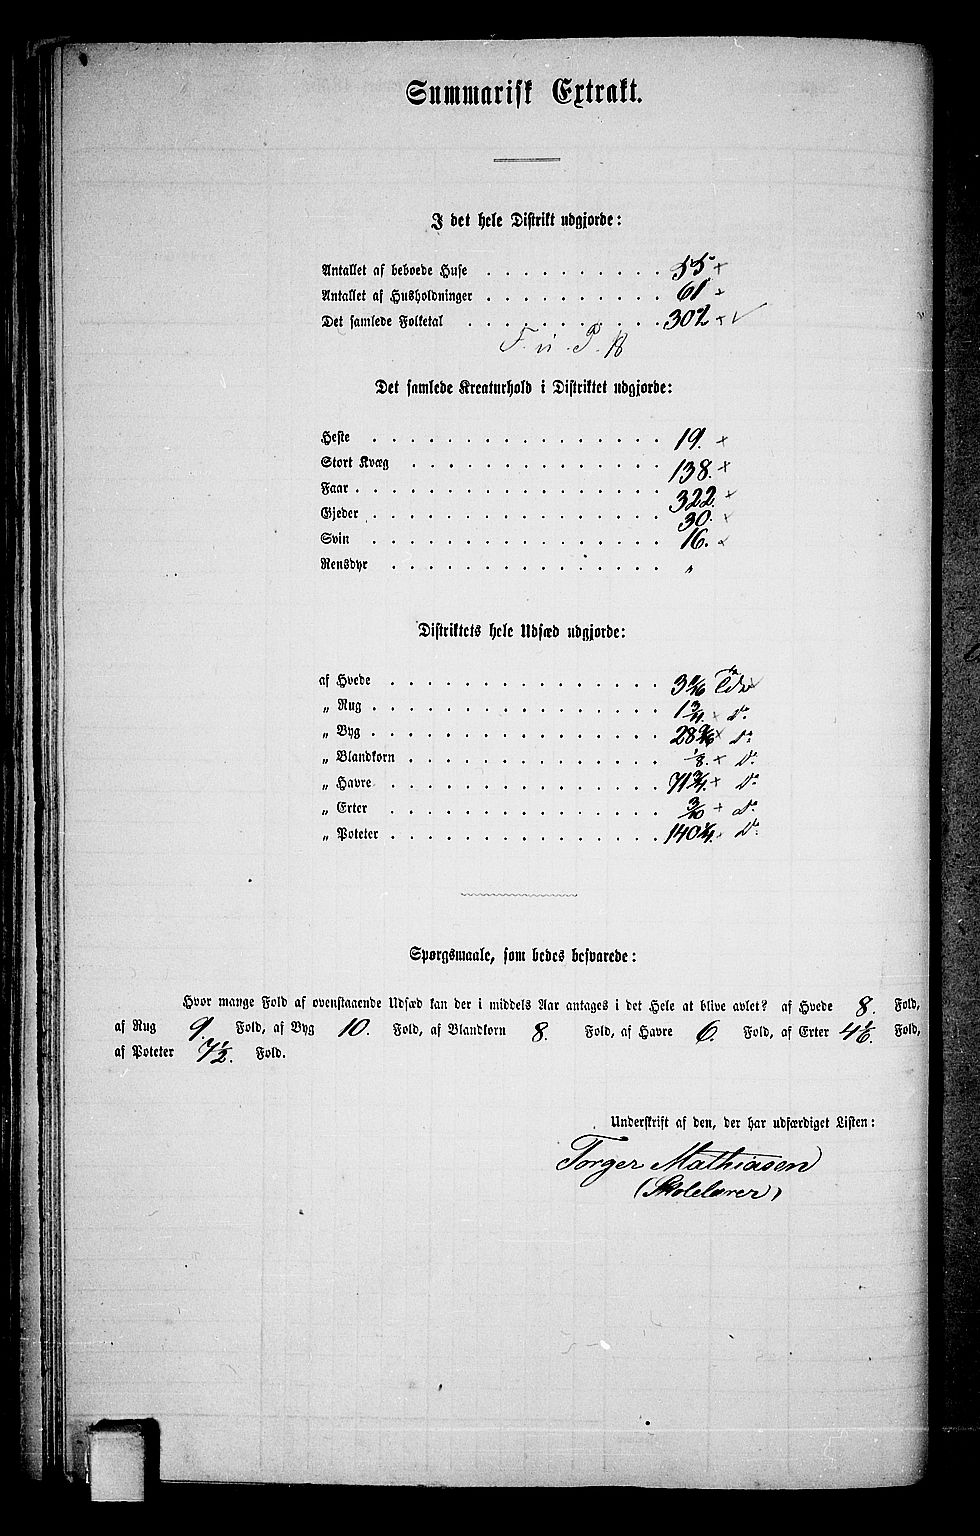 Summarisk Extrakt.
I det hele Distrikt udgjorde:
Antallet af beboede Huse . . . . . . . . . . 55
Antallet af Husholdninger . . . . . . . . . . 61
Det samlede Folketal . . . . . . . . . . . 302
Det samlede Kreaturhold i Distriktet udgjorde:
Heste . . . . . . . . . . . . . . . . 19.
Stort Kvæg . . . . . . . . . . . . . . 138.
Faar . . . . . . . . . . . . . . . . . 322.
Gjeder . . . . . . . . . . . . . . . . 30.
Svin . . . . . . . . . . . . . . . . 16.
Rensdyr . . . . . . . . . . . . . . . "
Distriktets hele Udsæd udgjorde:
af Hvede . . . . . . . . . . . . . . . 3
„ Rug . . . . . . . . . . . . . . . . 1 3/4. do
„ Byg . . . . . . . . . . . . . . . . 28 do
„ Blandkorn . . . . . . . . . . . . . . 1/8. do
„ Havre . . . . . . . . . . . . . . . 71 3/4. do
„ Erter . . . . . . . . . . . . . . . 3/10 do
„ Poteter . . . . . . . . . . . . . . . 140 1/4. do
Spørgsmaale, som bedes besvarede:
Hvor mange Fold af ovenstaaende Udsæd kan der i middels Aar antages i det Hele at blive avlet? af Hvede 8. Fold,
af Rug 9. Fold, af Byg 10. Fold, af Blandkorn 8. Fold, af Havre 6. Fold, af Erter Fold,
af Poteter 7 1/2. Fold.
Underskrift af den, der har udfærdiget Listen:
Torger Mathiasen
(Skolelærer)